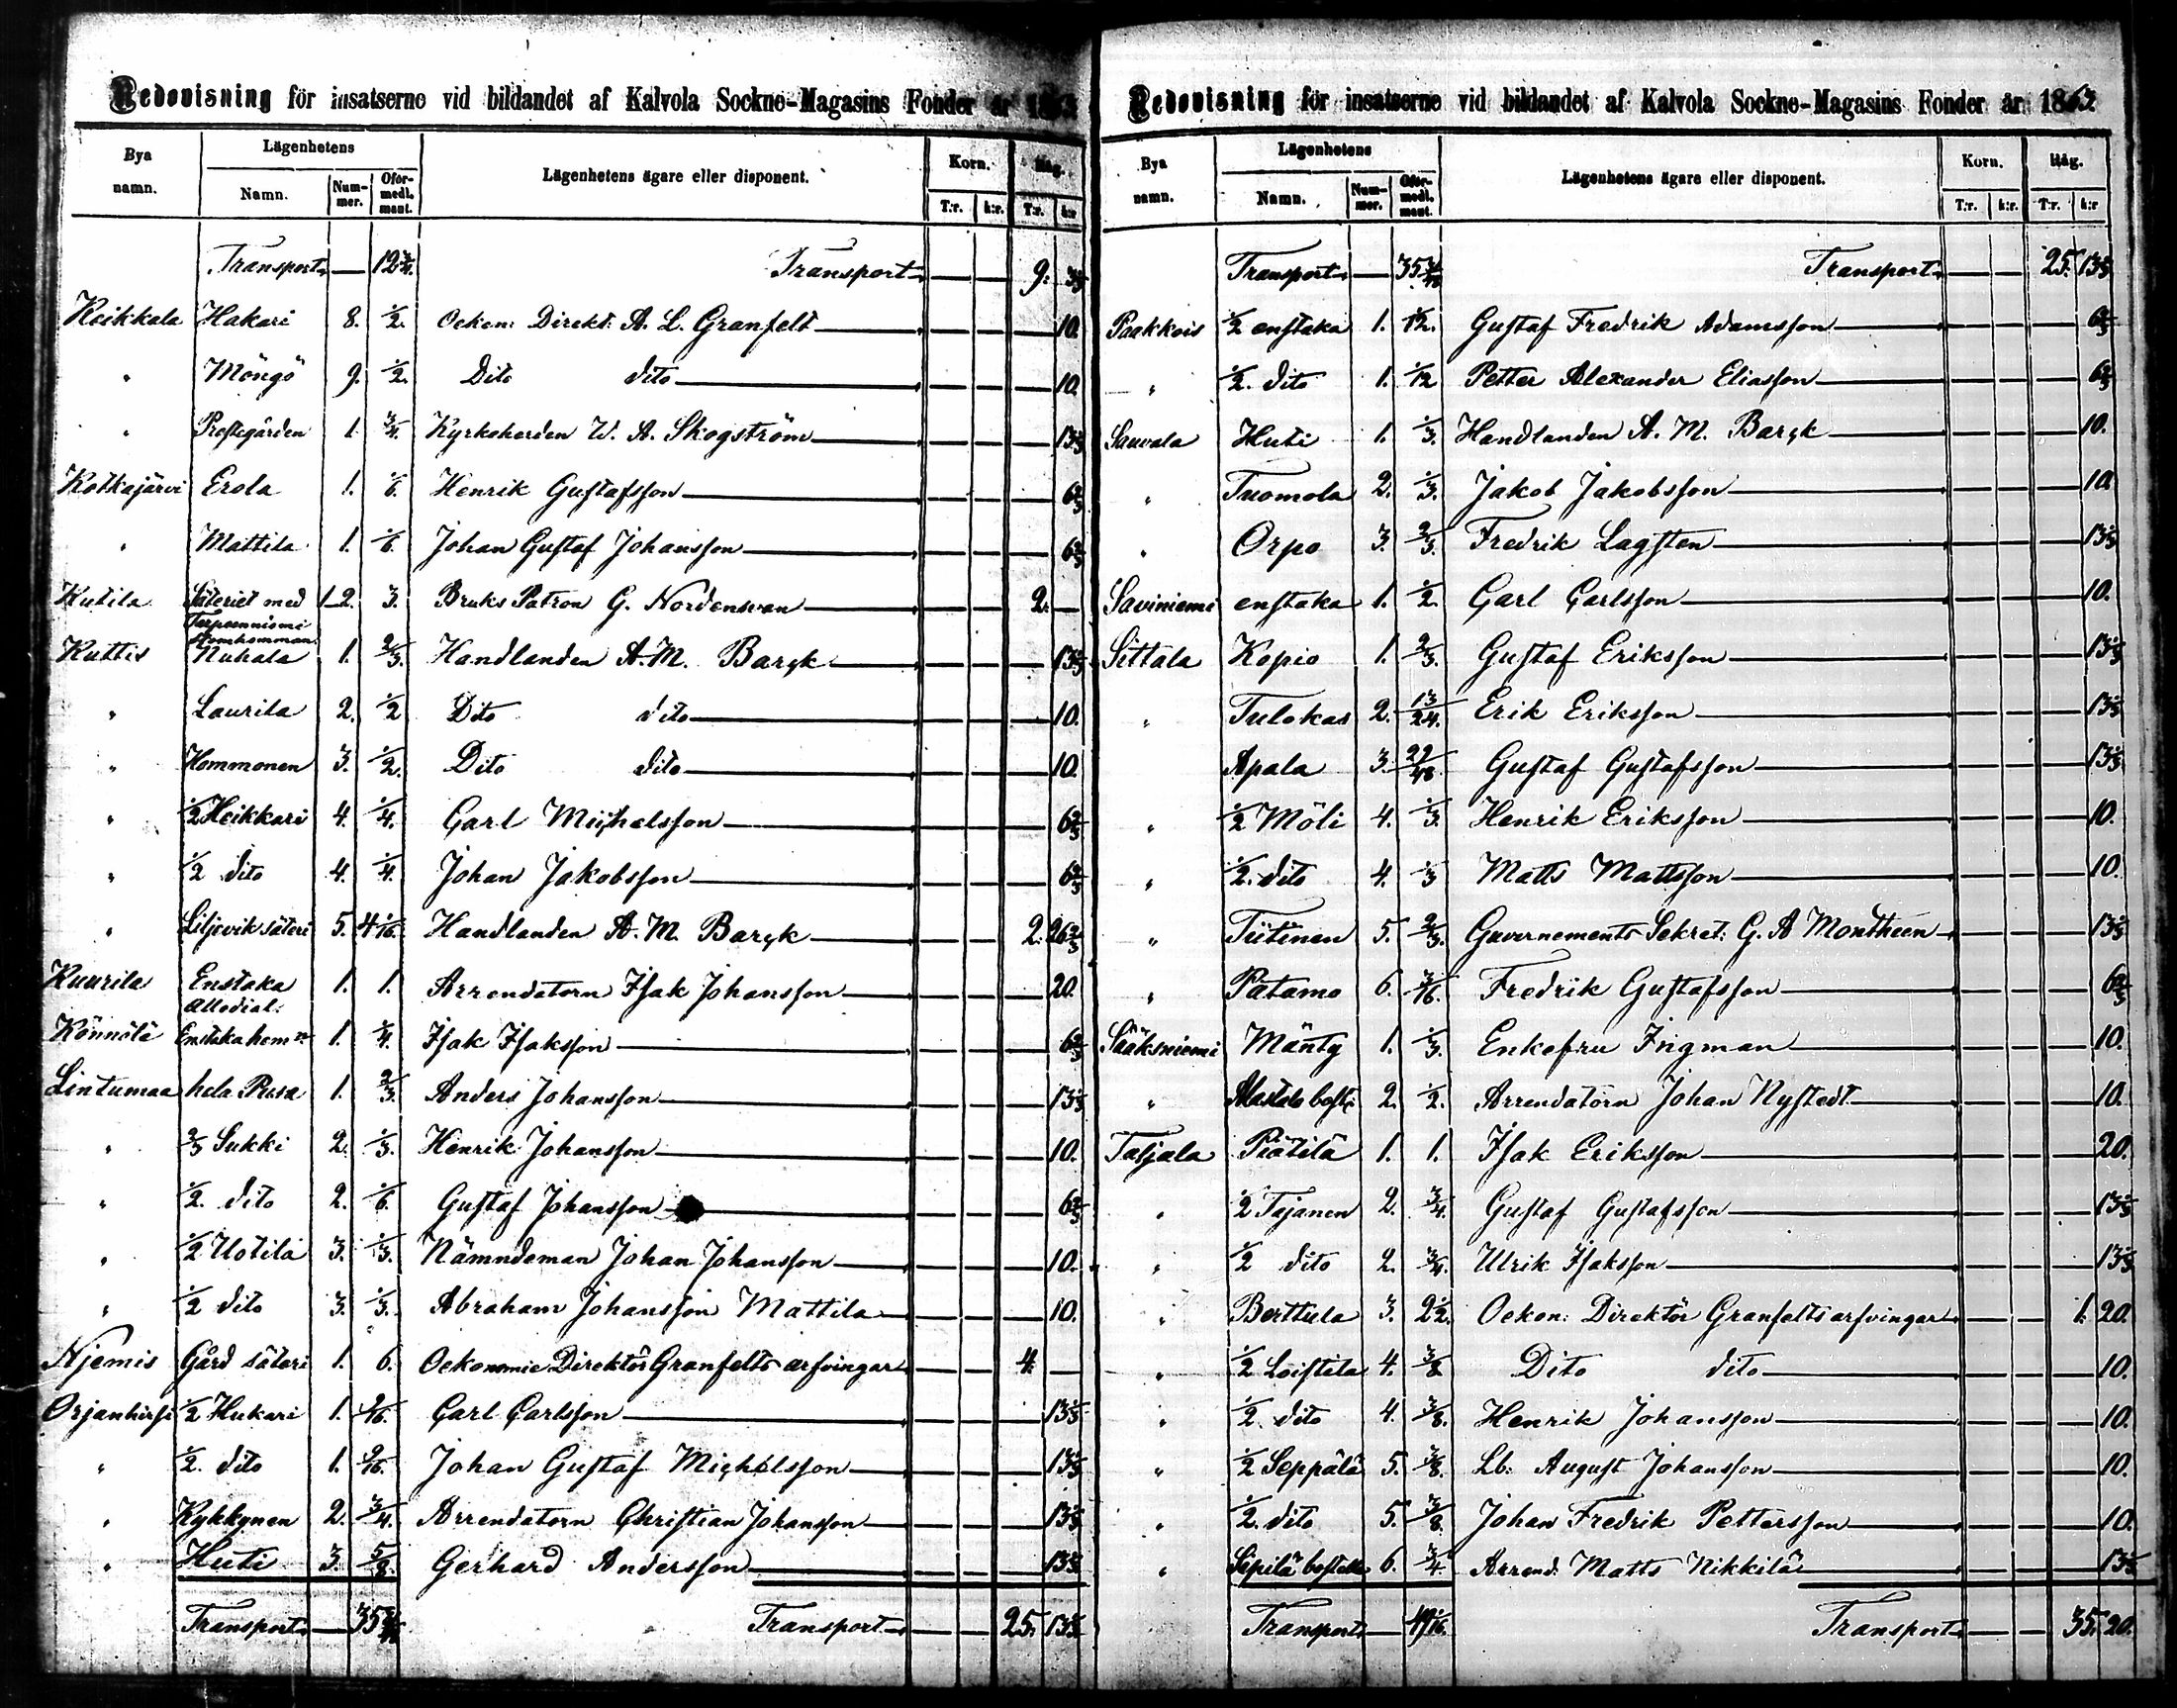 Redovisning för insatserne vid bildandet af Kalvola Sockne-Magasins Fonder år 1863
Bya namn. Lägenhetens Lägenhetens ägare eller disponent. Korn. Råg.
Namn. Num-mer. Oför-medl. mant. T:r. k:r. T:r. k:r
Transport — 12 3/4. Transport — — 9. 3 1/3
Keikkala Hakari 8. 1/2. Oekon: Direkt: A. L. Granfelt — — — 10.
" Möngö 9. 1/2. Dito dito — — — 10.
" Prestgården 1. 3/4. Kyrkoherden W. A. Skogström — — — 13 1/3
Kotkajärvi Erola 1. 1/6. Henrik Gustafsson — — — 6 2/3
" Mattila 1. 1/6. Johan Gustaf Johansson — — — 6 2/3
Kutila Säteriet med 1_2. 3. Bruks Patron G. Nordensvan — — 2. —
Kuttis Nuhala 1. 2/3. Handlanden A. M. Barck — — — 13 1/3
" Laurila 2. 1/2 Dito dito — — — 10.
" Hommonen 3. 1/2. Dito dito — — — 10.
" 1/2 Heikkari 4. 1/4. Carl Michelsson — — — 6 2/3
" 1/2 dito 4. 1/4. Johan Jakobsson — — — 6 2/3
" Liljevik säteri 5. 4 1/16. Handlanden A. M. Barck — — 2. 26 2/3
Kuurila Enstaka allodial. 1. 1. Arrendatorn Isak Johansson — — — 20.
Könnölä Enstaka hem:n 1. 1/4. Isak Isaksson — — — 6 2/3
Lintumaa hela Rusa 1. 2/3. Anders Johansson — — — 13 1/3
" 2/3 Sukki 2. 1/3. Henrik Johansson — — — 10.
" 1/2. dito 2. 1/6. Gustaf Johansson — — — 6 2/3
" 1/2 Uotila 3. 1/3. Nämndeman Johan Johansson — — — 10.
" 1/2 dito 3. 1/3. Abraham Johansson Mattila — — — 10.
Njemis Gård säteri 1. 6. Oekonomie Direktör Granfelts arfvingar — — 4. —
Orjanhirsi 1/2 Hukari 1. 9/16. Carl Carlsson — — — 13 1/3
" 1/2. dito 1. 9/16. Johan Gustaf Michelsson — — — 13 1/3
" Kykkynen 2. 3/4. Arrendatorn Christian Johansson — — — 13 1/3
" Huti 3. 5/8. Gerhard Andersson — — — 13 1/3
Transport — 35 Transport — — 25. 13 1/3
Redovisning för insatserne vid bildandet af Kalvola Sockne-Magasins Fonder år 1863
Bya namn. Lägenhetens Lägenhetens ägare eller disponent. Korn. Råg.
Namn. Num-mer. Oför-medl. mant. T:r. k:r. T:r. k:r
Transport — 35 Transport — — 25. 13 1/3
Paakkois 1/2 enstaka 1. 1/12. Gustaf Fredrik Adamsson — — — 6 2/3
" 1/2. dito 1. 1/12 Petter Alexander Eliasson — — — 6 2/3
Sauvala Huti 1. 1/3. Handlanden A. M. Barck — — — 10.
" Tuomola 2. 1/3. Jakob Jakobsson — — — 10.
" Orpo 3. 2/3. Fredrik Lagsten — — — 13 1/3
Saviniemi enstaka 1. 1/2. Carl Carlsson — — — 10.
Sittala Kopio 1. 2/3. Gustaf Eriksson — — — 13 1/3
" Tulokas 2. 13/24. Erik Eriksson — — — 13 1/3
Apala 3. /48. Gustaf Gustafsson — — — 13 1/3
" 1/2 Möli 4. 1/3. Henrik Eriksson — — — 10.
" 1/2. dito 4. 1/3 Matts Mattsson — — — 10.
" Tiitinen 5. 2/3. Guvernements Sekret: G. A Montheen — — — 13 1/3
" Patamo 6. 3/16. Fredrik Gustafsson — — — 6 2/3
Sääksniemi Mänty 1. 1/3. Enkefru Ingman — — — 10.
" 2. 1/2. Arrendatorn Johan Nystedt — — — 10.
Taljala Piätilä 1. 1. Isak Eriksson — — — 20.
" 1/2 Tajanen 2. 3/4. Gustaf Gustafsson — — — 13 1/3
" 1/2 dito 2. 3/4. Ulrik Isaksson — — — 13 1/3
" Berttula 3. 2 1/2. Oekon: Direktör Granfelts arfvingar — — 1. 20.
" 1/2 Loistila 4. 3/8 Dito dito — — — 10.
" 1/2. dito 4. 3/8. Henrik Johansson — — — 10.
" 1/2 Seppälä 5. 3/8. Lb: August Johansson — — — 10.
" 1/2. dito 5. 3/8. Johan Fredrik Pettersson — — — 10.
" Sipilä 6. 3/4. Arrend. Matts Nikkilä — — — 13 1/3
Transport — Transport — — 35. 20.